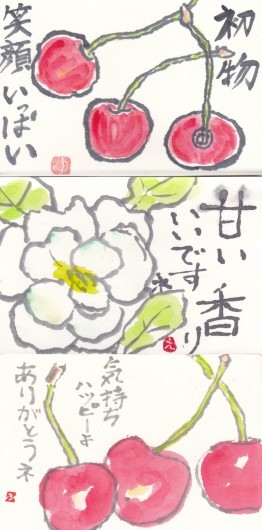 初物
笑顔いっぱい
甘い香り
いいですネ
気持ち
ハッピーよ
ありがとうネ
え